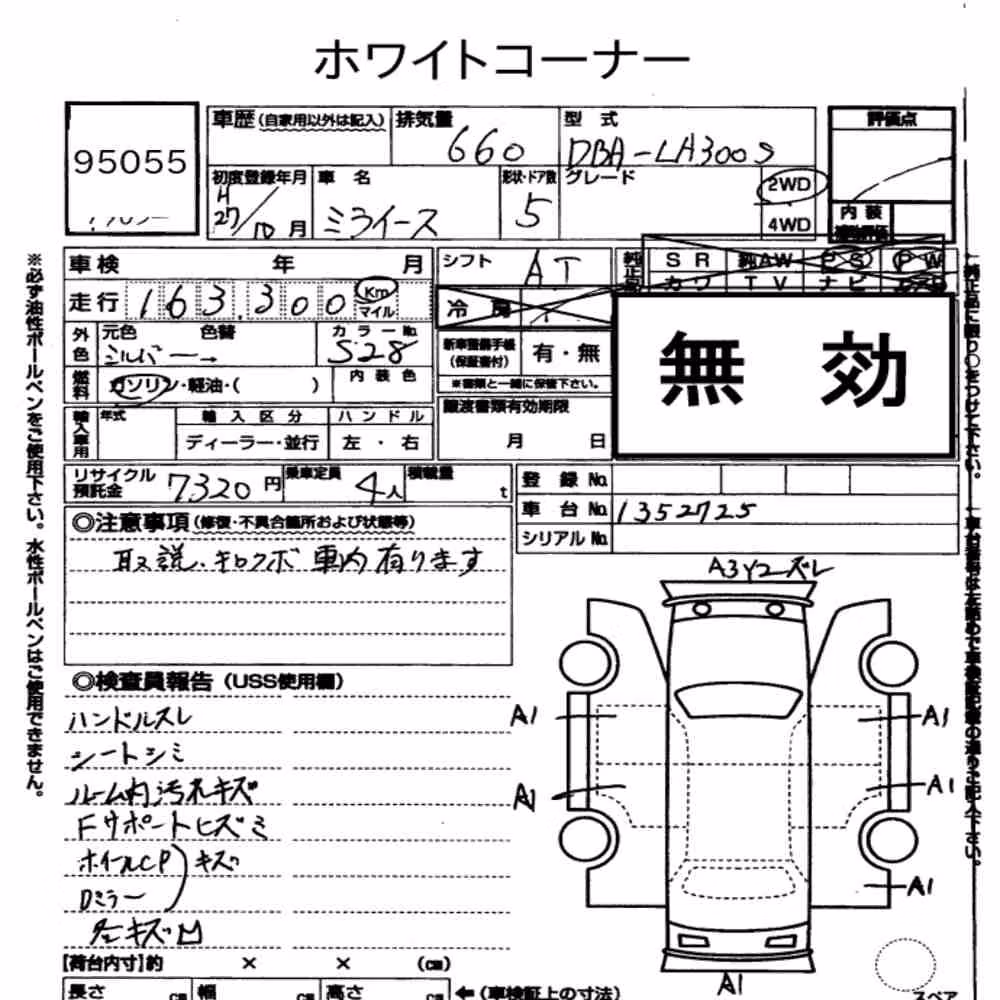 ホワイトコーナー
95055
車歴 (自家用以外は記入)
排気量 660
型式 DBA-LA300S
評価点
初度登録年月 H27/10月
車名 ミライース
形状・ドア数 5
グレード
2WD
4WD
内装
※必ず油性ボールペンをご使用下さい。水性ボールペンはご使用できません。
車検 年 月
シフト AT
純正品
SR 純AW PS PW
カワ TV ナビ
走行 163,300 Km マイル
冷房
無効
外色 元色 色替 カラーNo.
シルバー→ S28
新車整備手帳 (保証書付) 有・無
※書類と一緒に保管下さい。
燃料 ガソリン・軽油・( )
内装色
譲渡書類有効期限
月 日
輸入車用 年式 輸入区分 ハンドル
ディーラー・並行 左・右
リサイクル預託金 7320円
乗車定員 4人
積載量 t
登録No.
車台No. 1352725
シリアルNo.
◎注意事項 (修復・不具合箇所および状態等)
取説、キロクボ 車内有ります
A3Y2ーズレ
◎検査員報告 (USS使用欄)
ハンドルスレ
シートシミ
ルーム内汚れキズ
Fサポートヒズミ
ホイールCP)キズ
Dミラー
キズ凹
A1
A1
A1
A1
A1
A1
【荷台内寸】約 × × (cm)
長さ cm 幅 cm 高さ cm
←(車検証上の寸法)
スペア